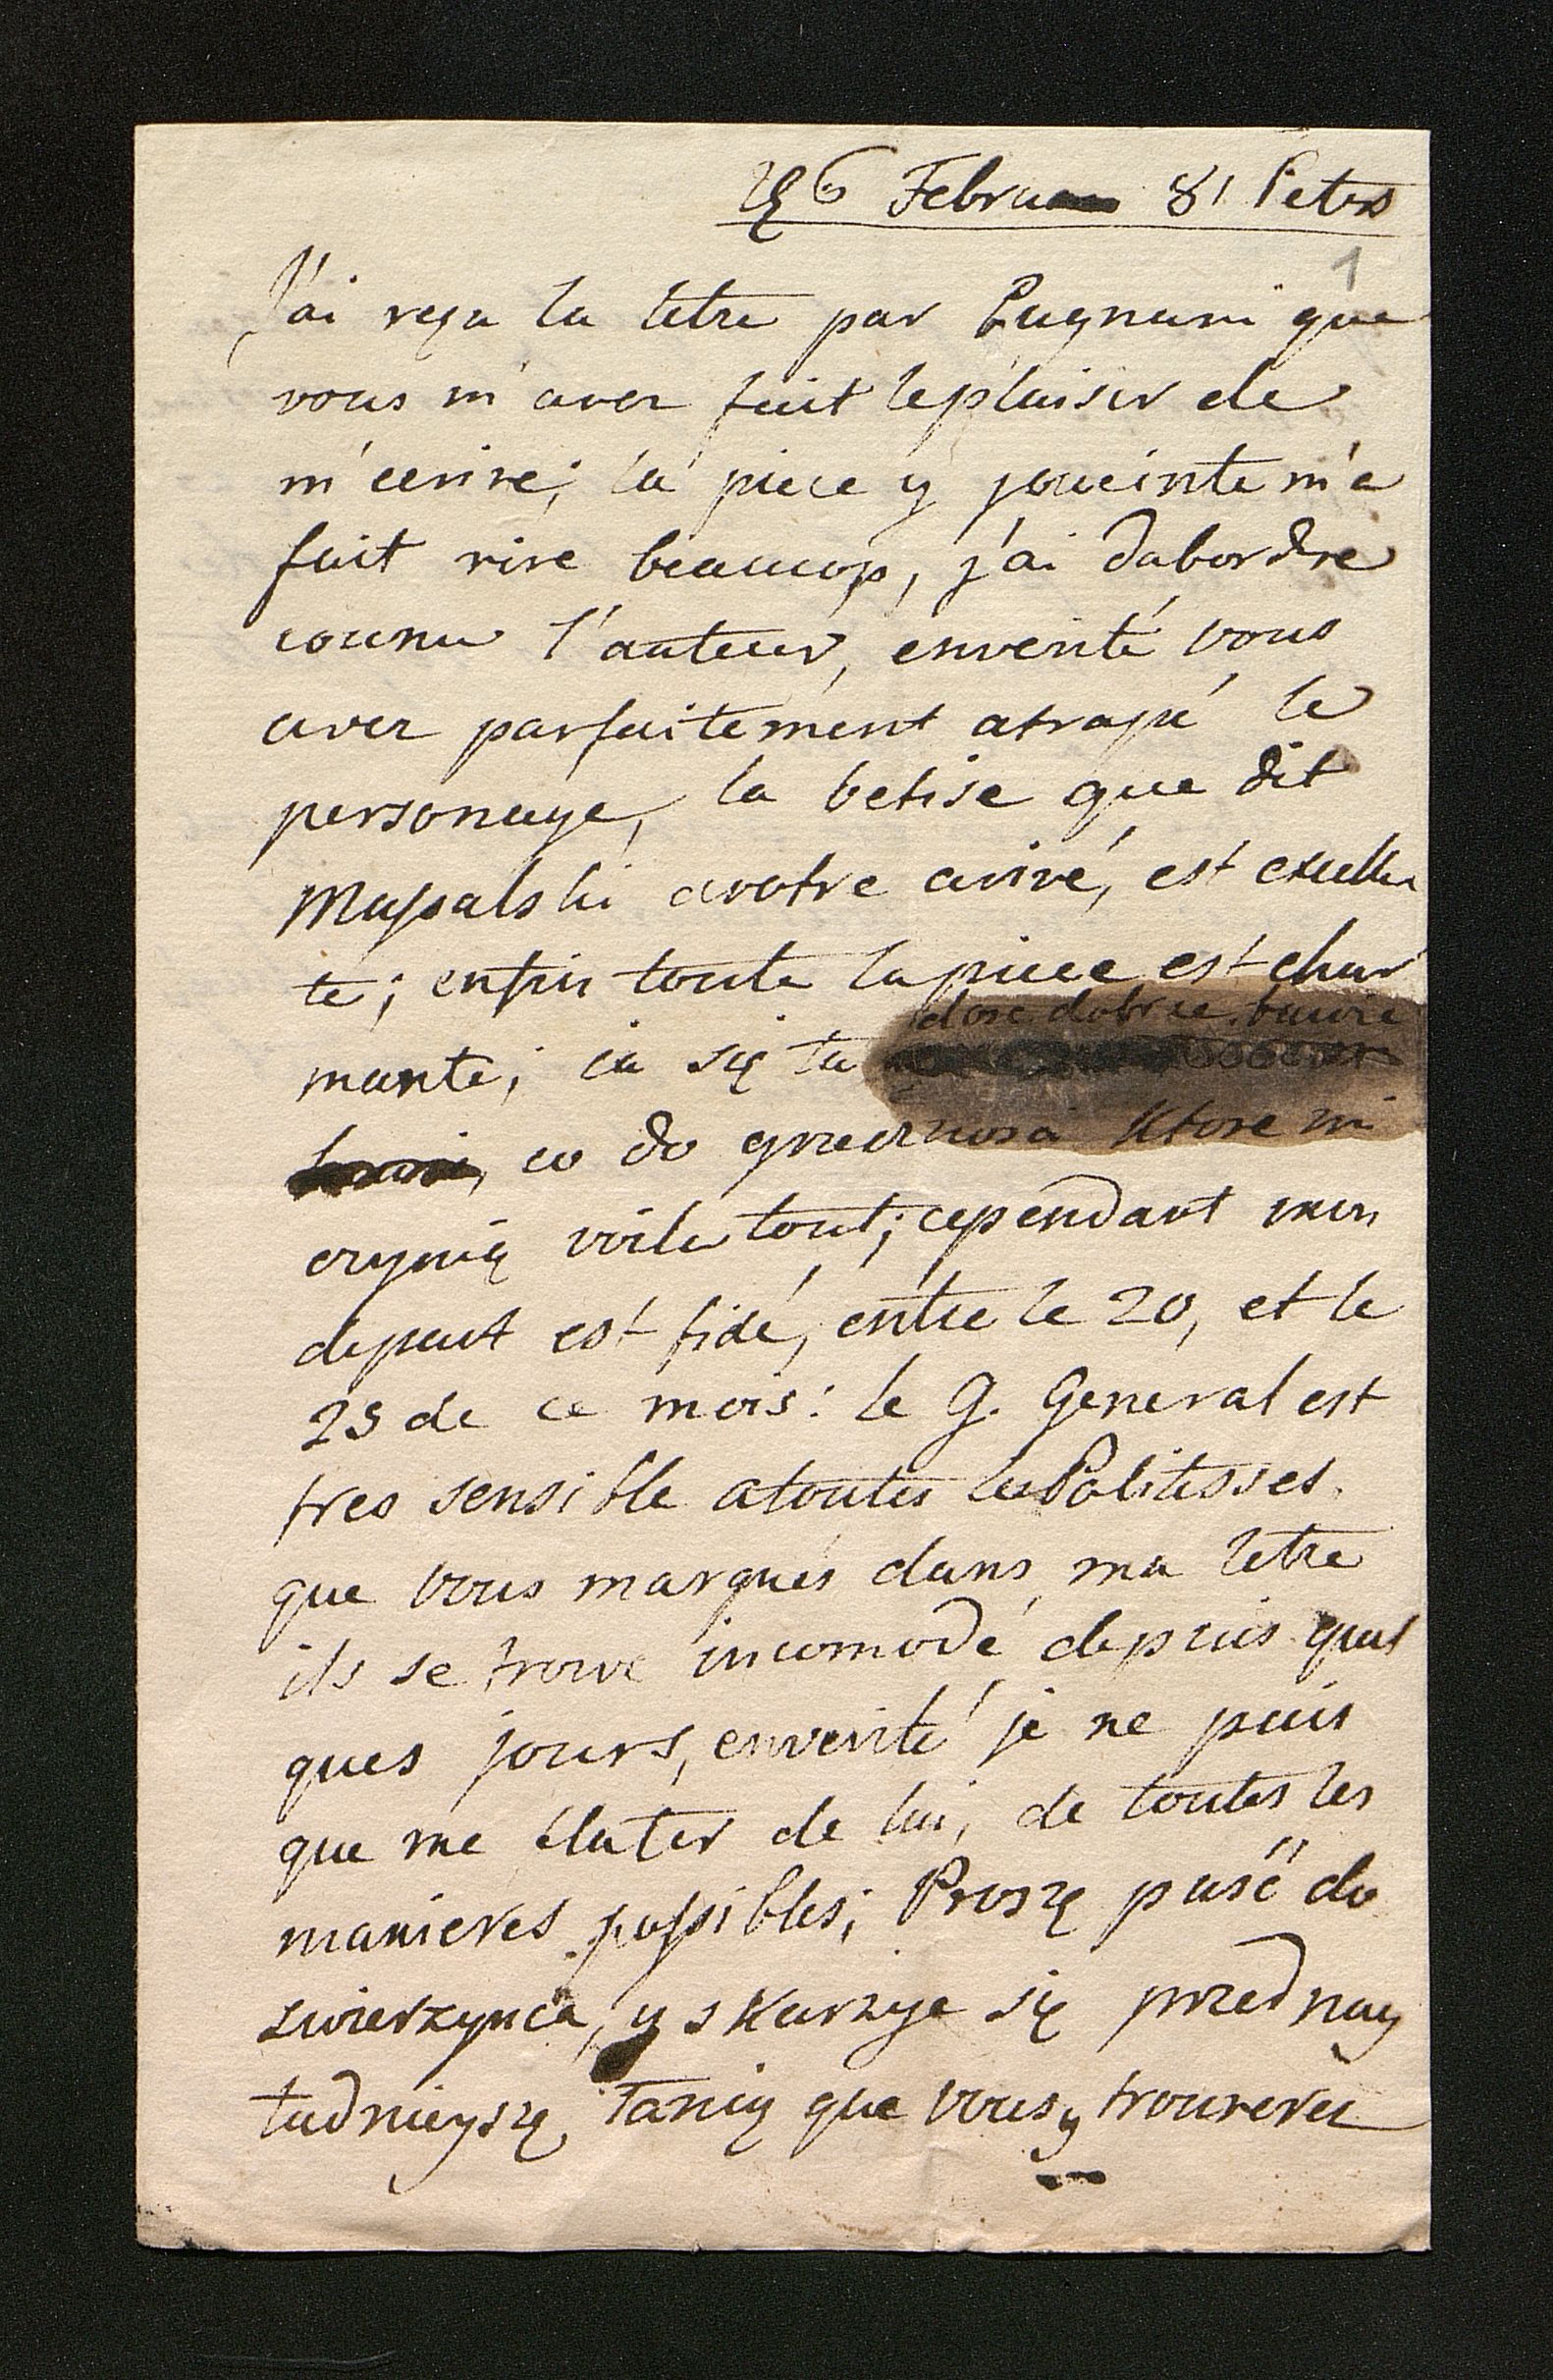 6 Februa 81 Peters
1
J'ai reçu la letre par Pugnani que
vous m'avez fait leplaisir de
m'ecrire; la piece y joueinte m'a
fait rire beaucop, j'ai dabordre
connu l'auteur, enverité vous
avez parfaitement atrapé le
personage, la betise que dit
Massalski avotre arivé, est exellen
te; enfin toute lapiece est char
mante; ia się tu dosc dobrze bawie
co do grzecznosci ktore mi
czynią voila tout; cependant mon
depart est fidé, entre le 20, et le
25 de ce mois: le G. General est
tres sensible atoutes lesPolitesses.
que vous marqués dans ma letre
ils se trouve incomodé depuis quel
ques jours, enverité je ne puis
que me flater de lui, de toutes les
manieres possibles; Proszę pusć do
zwierzynca, y skarzyc się przed nay
ladnieyszą Tanią que vous y trouverez